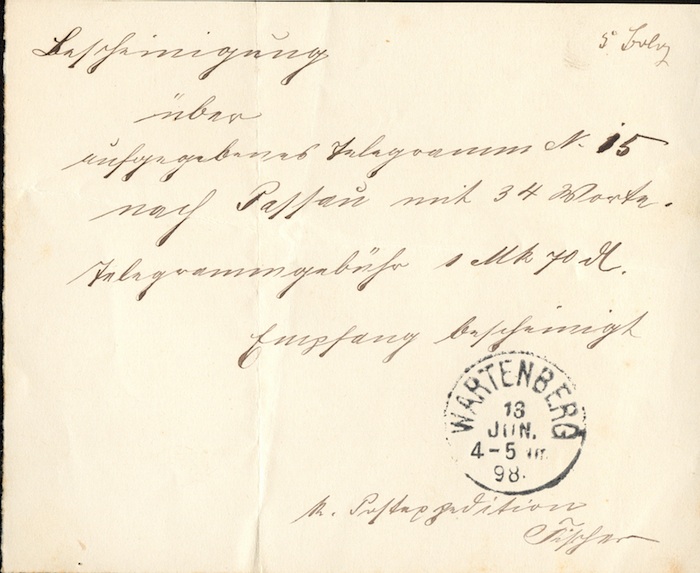 Bescheinigung
über
aufgegebenes Telegramm N. 15
nach Passau mit 34 Worte.
Telegrammgebühr 1 Mk 70 ₰.
Empfang bescheinigt
WARTENBERG
13
JUN.
4-5
98.
K. Postexpedition
Fischer